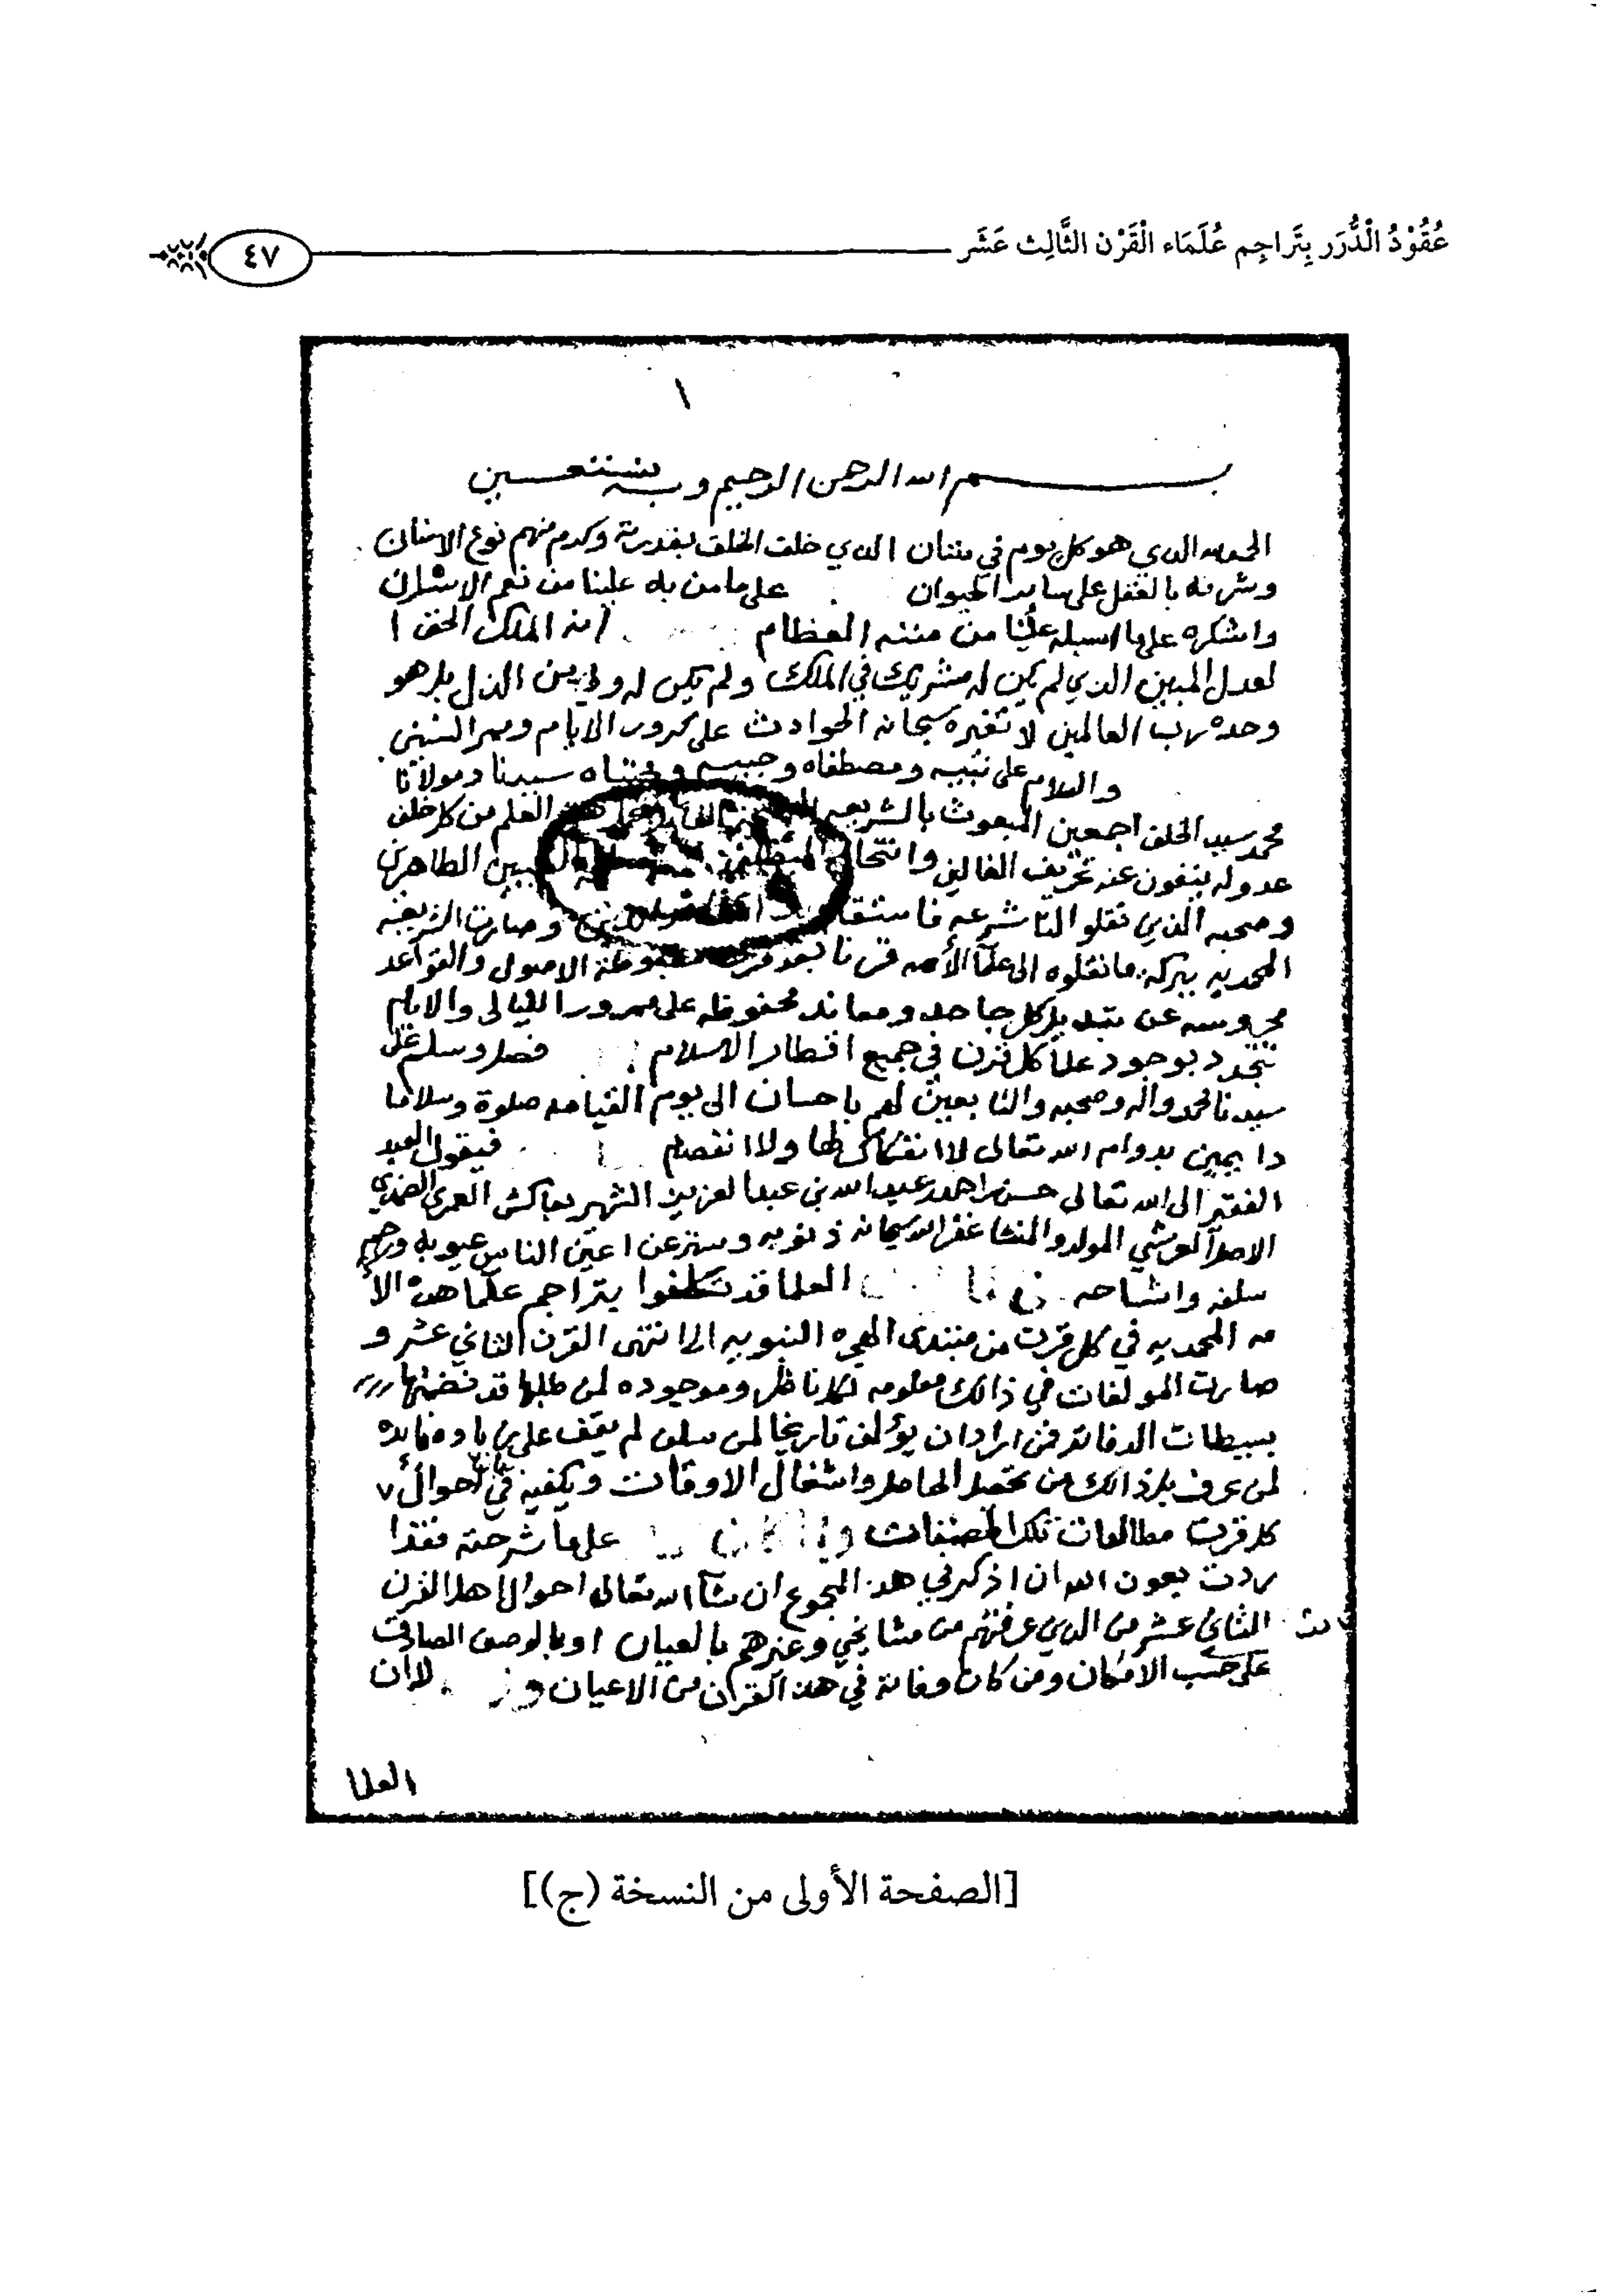 عُقُوْدُ الْدُّرَر بِتَراجِم عُلَمَاء الْقَرْن الثَّالِث عَشَر
٤٧
١
بسم الله الرحمن الرحيم وبه نستعين
الحمد لله الذي هو كل يوم في شان الذي خلق الخلق بقدرته وكرم منهم نوع الانسان
وشرفه بالعقل على ساير الحيوان على ما من به علينا من نعم الاسلام
واشكره على ما اسبله علينا من مننه العظام انه الملك الحق ا
لعدل المبين الذي لم يكن له شريك في الملك ولم يكن له ولي من الذل بل هو
وحده رب العالمين لا تغيره سبحانه الحوادث على كرور الايام وممر السنين
والسلام على نبيه ومصطفاه وحبيبه ومجتباه سيدنا ومولانا
محمد سيد الخلق اجمعين المبعوث بالشريعه العلم من كل خلف
عدوله ينفون عنه تحريف الغالين وانتحال المبطلين الطاهرين
وصحبه الذين نقلوا لنا شرعه وصارت الشريعه
المحمديه ببركة ما نقلوه الى علما الأمه قرنا بعد قرن الاصول والقواعد
محروسه عن تبديل كل جاحد ومعاند محفوظه على مرور الليالي والايام
تتجدد بوجود علما كل قرن في جميع اقطار الاسلام فصل وسلم على
سيدنا محمد واله وصحبه والتابعين لهم باحسان الى يوم القيامه صلوة وسلاما
دايمين بدوام الله تعالى لا انفكاك لها ولا انفصام فيقول العبد
الفقير الى الله تعالى حسن بن احمد بن عبد الله بن عبد العزيز الشهير بعاكش العمري الضمدي
الاصل العريشي المولد والمنشا غفر الله سبحانه ذنوبه وستر عن اعين الناس عيوبه ورحم
سلفه واشياخه العلما قد تكلفوا بتراجم علما هذه الأ
مه المحمديه في كل قرن من مبتدى الهجره النبويه الى انتهى القرن الثاني عشر و
صارت المولفات في ذالك معلومه لكل ناظر وموجوده لمن طلبها قد تضمنتها
بسيطات الدفاتر فمن اراد ان يؤلف تاريخا لمن سلف لم يقف على زياده فايده
لمن عرف بل ذالك من تحصيل الحاصل واشغال الاوقات ويكفيه في احوال
كل قرن مطالعات تلك المصنفات على ما شرحته فقد ا
ردت بعون الله ان اذكر في هذه المجموع ان شآ الله تعالى احوال اهل القرن
الثالث عشر من الذي عرفتهم من مشايخي وغيرهم بالعيان او بالوصف الصادق
على حسب الامكان ومن كان وفاته في هذه القرن من الاعيان لان
العلما
[الصفحة الأولى من النسخة (ج)]